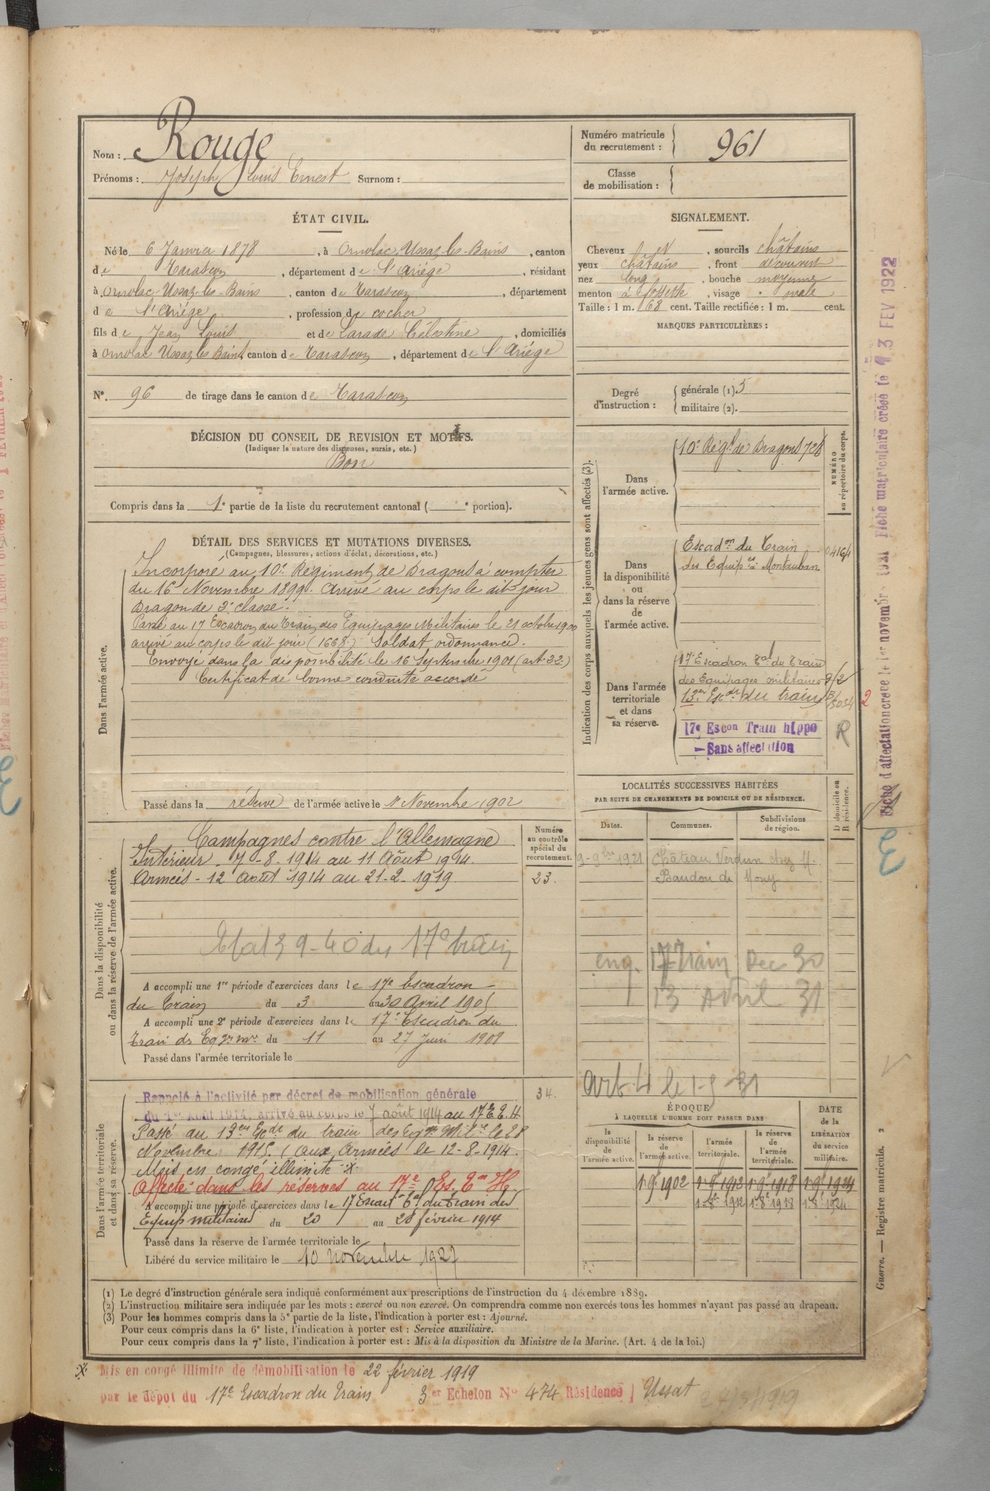 Nom : Rouge
Prénoms : Joseph Louis Ernest Surnom :
Numéro matricule du recrutement : 961
Classe de mobilisation :
ÉTAT CIVIL.
Né le 6 Janvier 1878, à Ornolac-Ussat-les-Bains, canton
de Tarascon, département de l'Ariège, résidant
à Ornolac-Ussat-les-Bains, canton de Tarascon, département
d e l'Ariège, profession de cocher
fils de Jean Louis et de Larade Célestine, domiciliés
à Ornolac Ussat les Bains, canton de Tarascon, département de l'Ariège
N°. 96 de tirage dans le canton de Tarascon
SIGNALEMENT.
Cheveux N, sourcils châtains
yeux châtains, front découvert
nez long, bouche moyenne
menton à fossette, visage ovale
Taille : 1 m. 68 cent. Taille rectifiée : 1 m. cent.
MARQUES PARTICULIÈRES :
Degré d'instruction : générale (1). 3
militaire (2).
DÉCISION DU CONSEIL DE REVISION ET MOTIFS.
(Indiquer la nature des dispenses, sursis, etc.)
Bon
Compris dans la 1e partie de la liste du recrutement cantonal ( e portion).
DÉTAIL DES SERVICES ET MUTATIONS DIVERSES.
(Campagnes, blessures, actions d'éclat, décorations, etc.)
Dans l'armée active.
Incorporé au 10e Régiment de Dragons à compter
du 16 Novembre 1899. Arrivé au corps le dit jour
Dragon de 2e classe.
Passé au 17 Escadron du Train des Equipages Militaires le 21 octobre 1900
arrivé au corps le dit jour (1668) Soldat ordonnance.
Envoyé dans la disponibilité le 16 Septembre 1901 (art 33)
Certificat de bonne conduite accordé
Passé dans la réserve de l'armée active le 1er Novembre 1902
Indication des corps auxquels les jeunes gens sont affectés (3).
NUMÉRO au répertoire du corps.
Dans l'armée active.
10e Régt de Dragons 728
Dans la disponibilité ou dans la réserve de l'armée active.
Escadon du Train
des Equipges Montauban 04164
Dans l'armée territoriale et dans sa réserve.
17e Escadron Tal du Train
des Equipages militaires
13em Escon du train
17e Escon Train hippo
Sans affectation
R
2
LOCALITÉS SUCCESSIVES HABITÉES
PAR SUITE DE CHANGEMENTS DE DOMICILE OU DE RÉSIDENCE.
Dates. Communes. Subdivisions de région. D domicile ou R résidence.
9-9bre 1921 Château Verdun chez M.
Baudon de Mony
eng. 17 Train Dec 30
13 Avril 31
Art 4 le 1-5-31
Dans la disponibilité ou dans la réserve de l'armée active.
Numéro au contrôle spécial du recrutement.
Campagnes contre l'Allemagne
Intérieur - 7-8-1914 au 11 Août 1914.
Armées - 12 Août 1914 au 21-2-1919 23.
A accompli une 1re période d'exercices dans le 17e Escadron
du Train du 3 au 30 Avril 1905
A accompli une 2e période d'exercices dans le 17e Escadron du
Train des Eqges Mres du 11 au 27 Juin 1908
Passé dans l'armée territoriale le
Dans l'armée territoriale et dans sa réserve.
Rappelé à l'activité par décret de mobilisation générale 34.
du 1er Août 1914, arrivé au corps le 7 août 1914 au 17e E.T.
Passé au 13em Escon du train des Eqges Milres le 28
Novembre 1915. (aux Armées le 12-8-1914.
Mis en congé illimité x.
Affecté dans les réserves au 17e Es. Tn H
A accompli une période d'exercices dans le 17 Escadn Tal du Train des
Equip militaires du 20 au 28 février 1914
Passé dans la réserve de l'armée territoriale le
Libéré du service militaire le 10 novembre 1927
ÉPOQUE
À LAQUELLE L'HOMME DOIT PASSER DANS
la disponibilité de l'armée active. la réserve de l'armée active. l'armée territoriale. la réserve de l'armée territoriale.
DATE de la LIBÉRATION du service militaire.
(1) Le degré d'instruction générale sera indiqué conformément aux prescriptions de l'instruction du 4 décembre 1889.
(2) L'instruction militaire sera indiquée par les mots : exercé ou non exercé. On comprendra comme non exercés tous les hommes n'ayant pas passé au drapeau.
(3) Pour les hommes compris dans la 5e partie de la liste, l'indication à porter est : Ajourné.
Pour ceux compris dans la 6e liste, l'indication à porter est : Service auxiliaire.
Pour ceux compris dans la 7e liste, l'indication à porter est : Mis à la disposition du Ministre de la Marine. (Art. 4 de la loi.)
x Mis en congé illimité de démobilisation le 22 février 1919
par le dépot du 17e Escadron du Train 3er Echelon No 474 Résidence Ussat
Guerre. — Registre matricule. 2
Fiche matriculaire créée le 13 FEV 1922